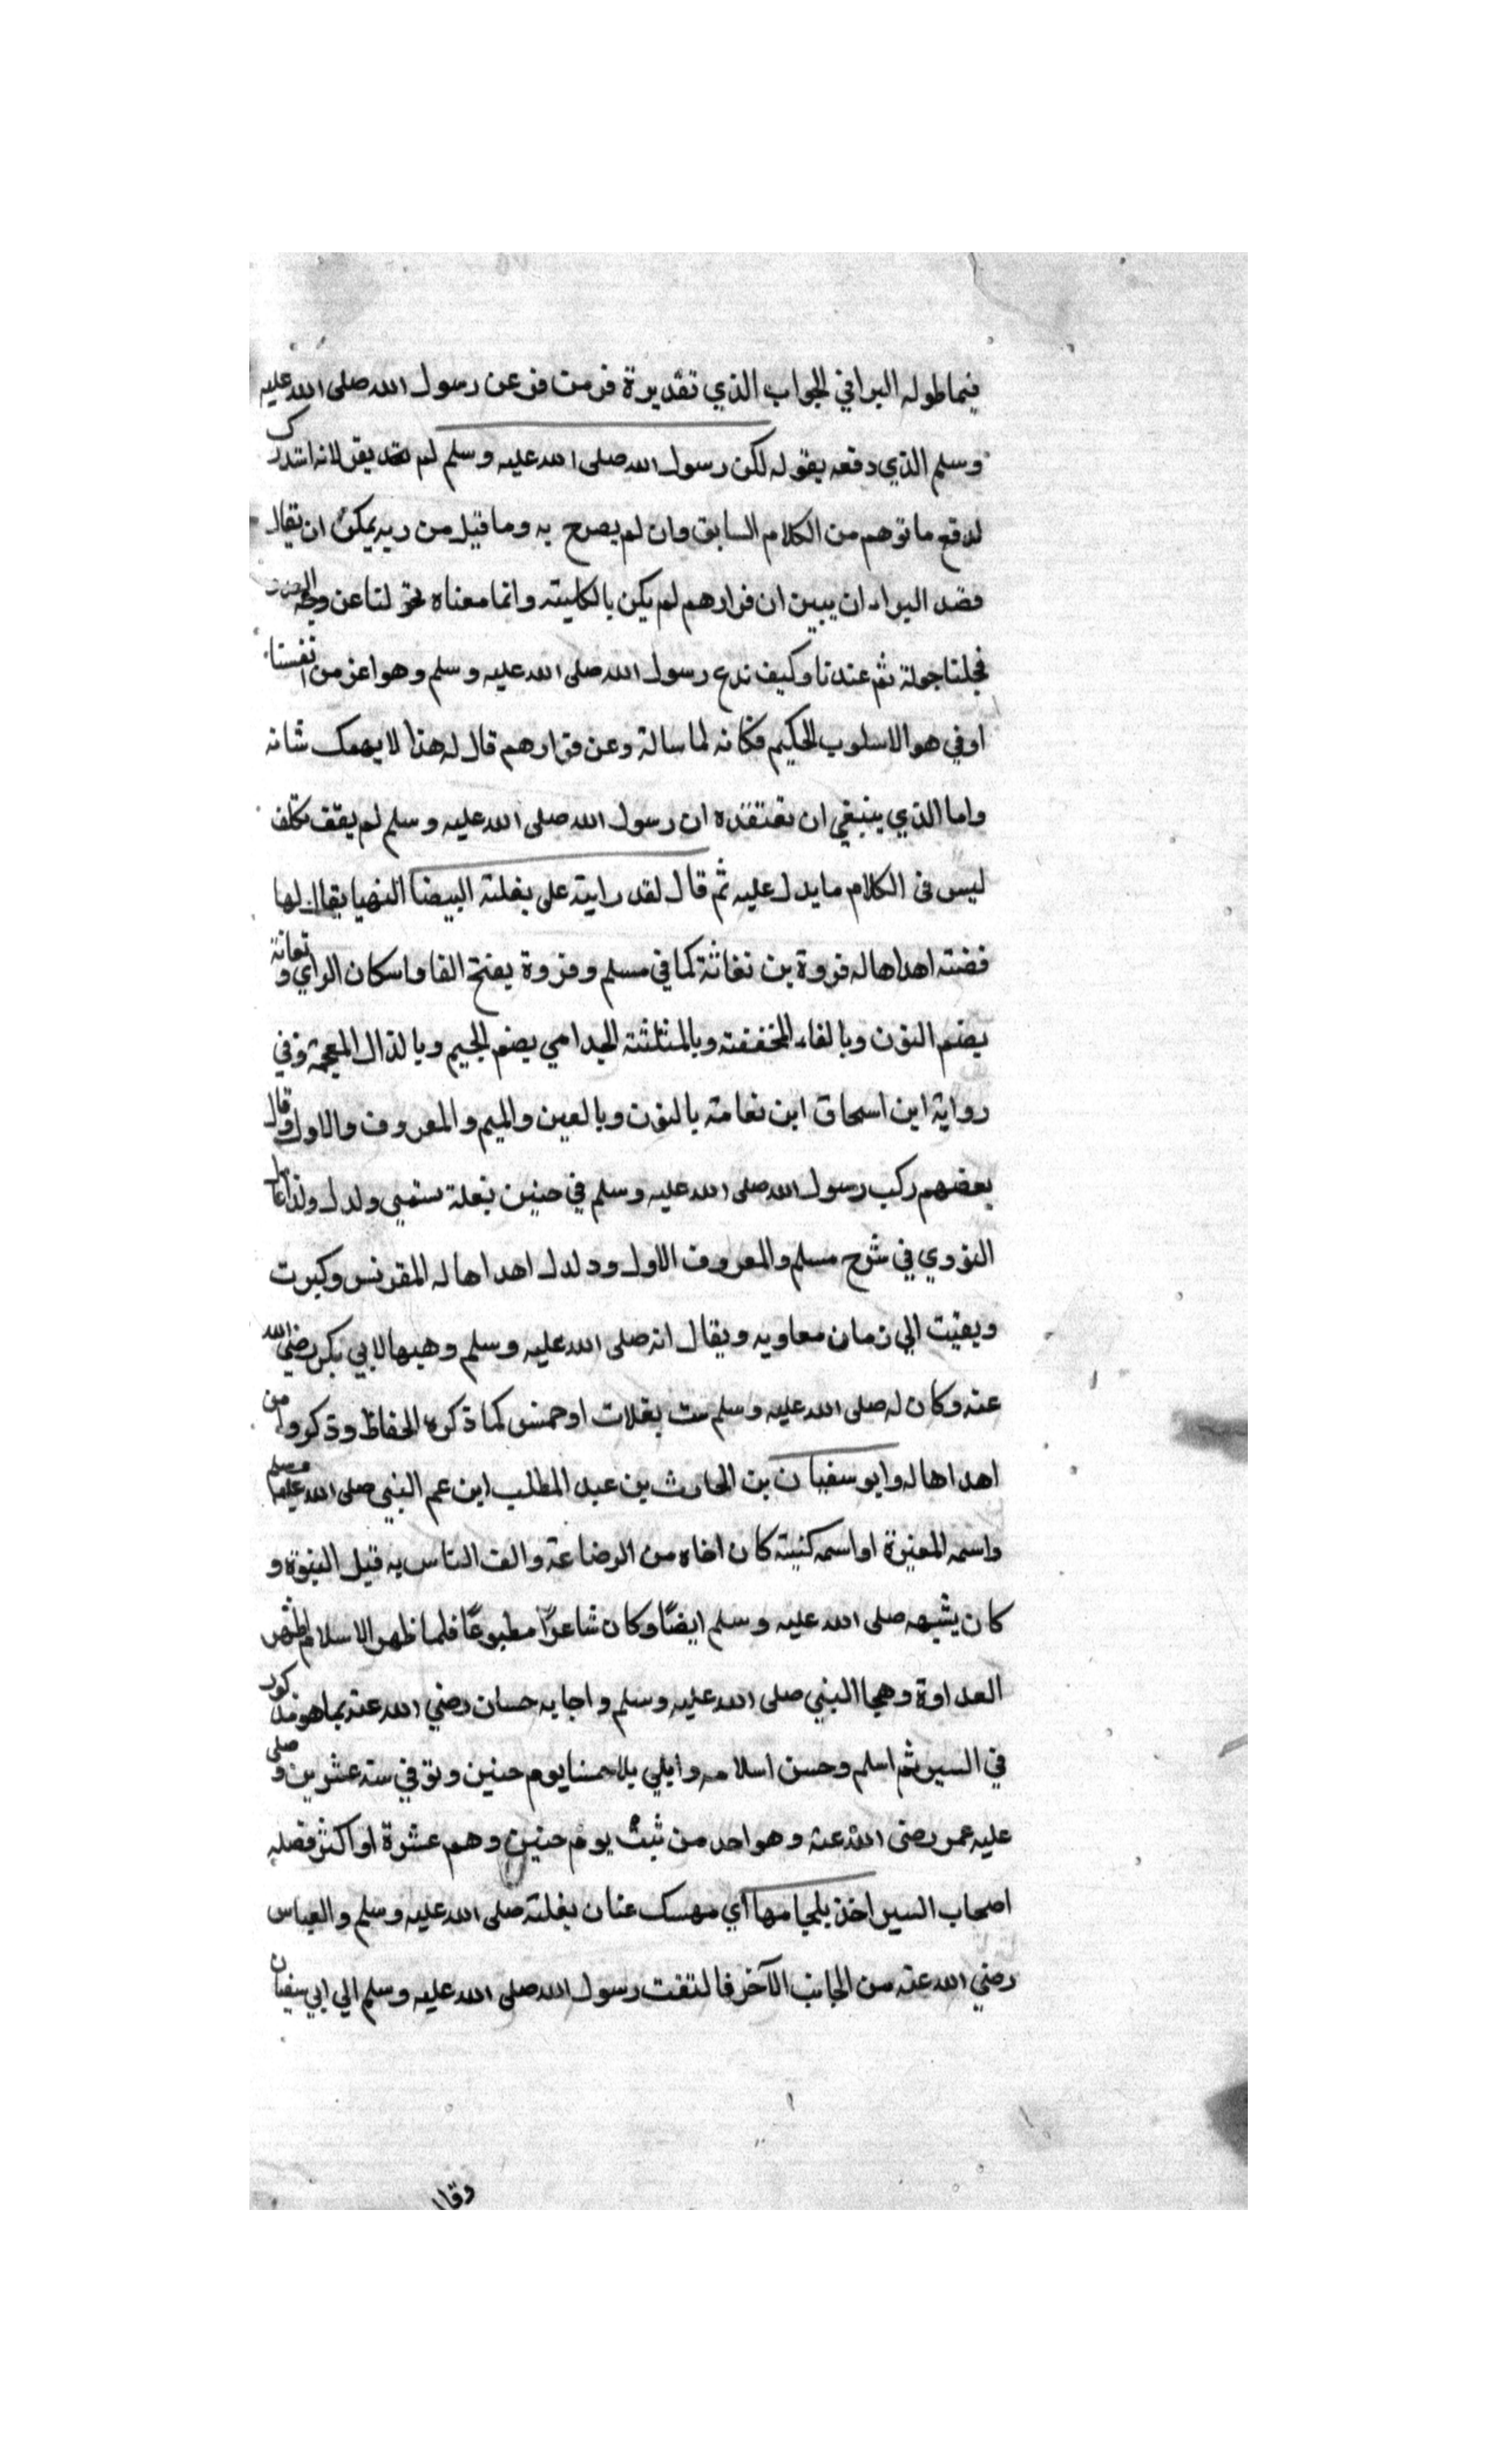 فيما طوله البرا في الجواب الذي تقديرة فر من فر عن رسول الله صلى الله عليه
وسلم الذي دفعه بقوله لكن رسول الله صلى الله عليه وسلم لم يفر لانه استدرك
لدفع ما توهم من الكلام السابق وان لم يصرح به وما قيل من ريه يمكن ان يقال
قصد البراء ان يبين ان فرارهم لم يكن بالكليته وانما معناه تحولنا عن وجه
فجلنا جولة ثم عندنا وكيف ندع رسول الله صلى الله عليه وسلم وهو اعز من انفسنا
او في هو الاسلوب الحكيم فكانه لما ساله وعن فرارهم قال له هذا لا يهمك شانه
واما الذي ينبغي ان تعتقده ان رسول الله صلى الله عليه وسلم لم يقف تكلف
ليس في الكلام ما يدل عليه ثم قال لقد رايته على بغلته البيضا الشهبا يقال لها
فضته اهداها له فروة بن نفاثة كما في مسلم وفروة بفتح الفا واسكان الراي ونفاثة
بضم النون وبالفاء المخففته وبالمثلثته الجدامي بضم الجيم وبالذال المعجمة وفي
رواية ابن اسحاق ابن نعامة بالنون وبالعين والميم والمعروف والاول وقال
بعضهم ركب رسول الله صلى الله عليه وسلم في حنين بغلة تسمى ولدل
النووي في شرح مسلم والمعروف الاول ودلدل اهداها له المقونس وكبرت
وبقيت الي زمان معاويه ويقال انه صلى الله عليه وسلم وهبها لابي بكر رضي الله
عنه وكان له صلى الله عليه وسلم ست بغلات او خمس كما ذكره الحفاظ وذكروا من
اهداها له وابو سفيان بن الحارث بن عبد المطلب ابن عم النبي صلى الله عليه وسلم
واسمه المغيرة او اسمه كنيته كان اخاه من الرضاعة والف الناس به قبل النبوة و
كان يشبهه صلى الله عليه وسلم ايضًا وكان شاعرًا مطبوعًا فلما ظهر الاسلام اظهر
العداوة وهجا النبي صلى الله عليه وسلم واجابه حسان رضي الله عنه بما هو مذكور
في السير ثم اسلم وحسن اسلامه وابلي بلا حسنا يوم حنين وتوفي سنه عشرين وصلى
عليه عمر رضى الله عنه وهو احد من ثبت يوم حنين وهم عشرة او اكثر فصله
اصحاب السير اخذ بلجامها اي مهسك عنان بغلته صلى الله عليه وسلم والعباس
رضي الله عنه من الجانب الآخر فالتفت رسول الله صلى الله عليه وسلم الي ابي سفيان
وقال